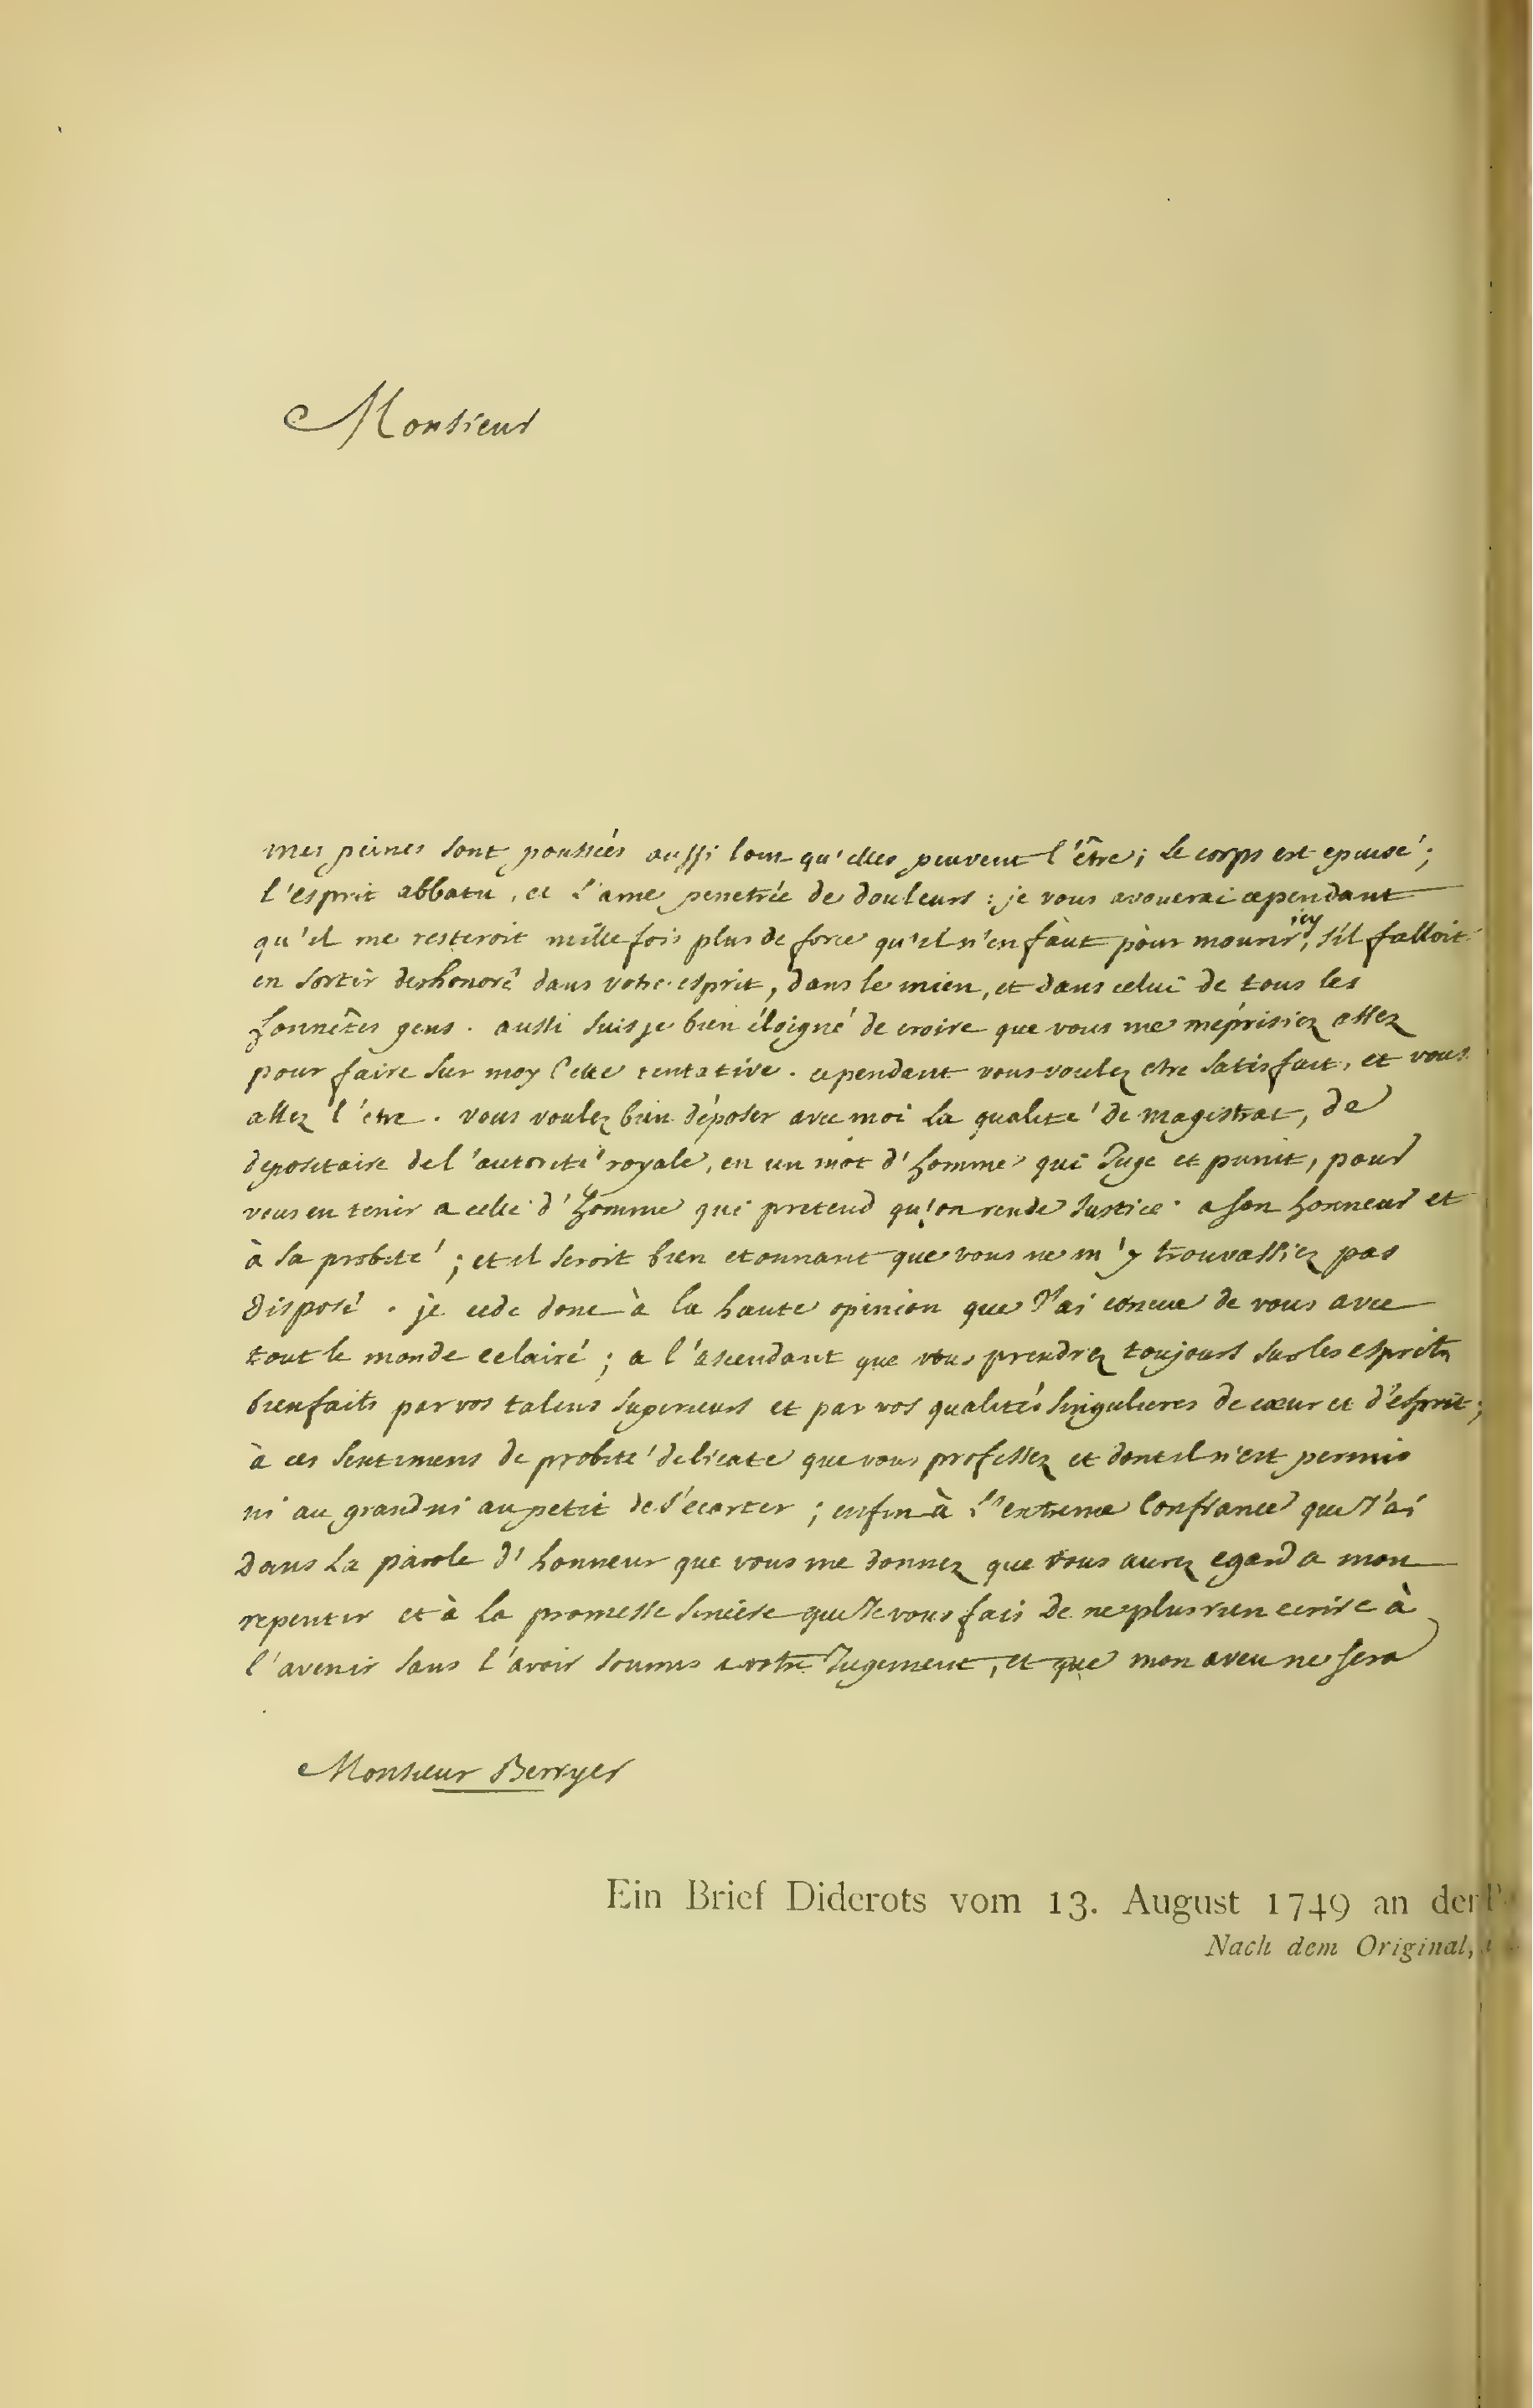 Monsieur
mes peines sont poussées aussi loin qu'elles peuvent l'être; le corps est epuisé;
l'esprit abbatu, et l'ame penetrée de douleurs : je vous avouerai cependant
qu'il me resteroit mille fois plus de force qu'il n'en faut pour mourir icy, s'il falloit
en sortir deshonoré dans votre esprit, dans le mien, et dans celui de tous les
honnêtes gens . aussi suis je bien éloigné de croire que vous me méprisiez assez
pour faire sur moy cette tentative . cependant vous voulez etre satisfait, et vous
allez l'etre . vous voulez bien déposer avec moi la qualité de magistrat, de
depositaire de l'autorité royale, en un mot d'homme qui juge et punit, pour
vous en tenir a celle d'homme qui pretend qu'on rende justice a son honneur et
à sa probité ; et il seroit bien etonnant que vous ne m'y trouvassiez pas
disposé . je cede donc à la haute opinion que j'ai concue de vous avec
tout le monde eclairé ; a l'ascendant que vous prendrez toujours sur les esprits
bienfaits par vos talens superieurs et par vos qualités singulieres de cœur et d'esprit ;
à ces sentimens de probité délicate que vous professez et dont il n'est permis
ni au grand ni au petit de s'ecarter ; enfin à l'extreme confiance que j'ai
dans la parole d'honneur que vous me donnez que vous aurez egard a mon
repentir et à la promesse sincère que je vous fais de ne plus rien ecrire à
l'avenir sans l'avoir soumis a votre jugement, et que mon aveu ne sera
Monsieur Berryer
Ein Brief Diderots vom 13. August 1749 an den
Nach dem Original,